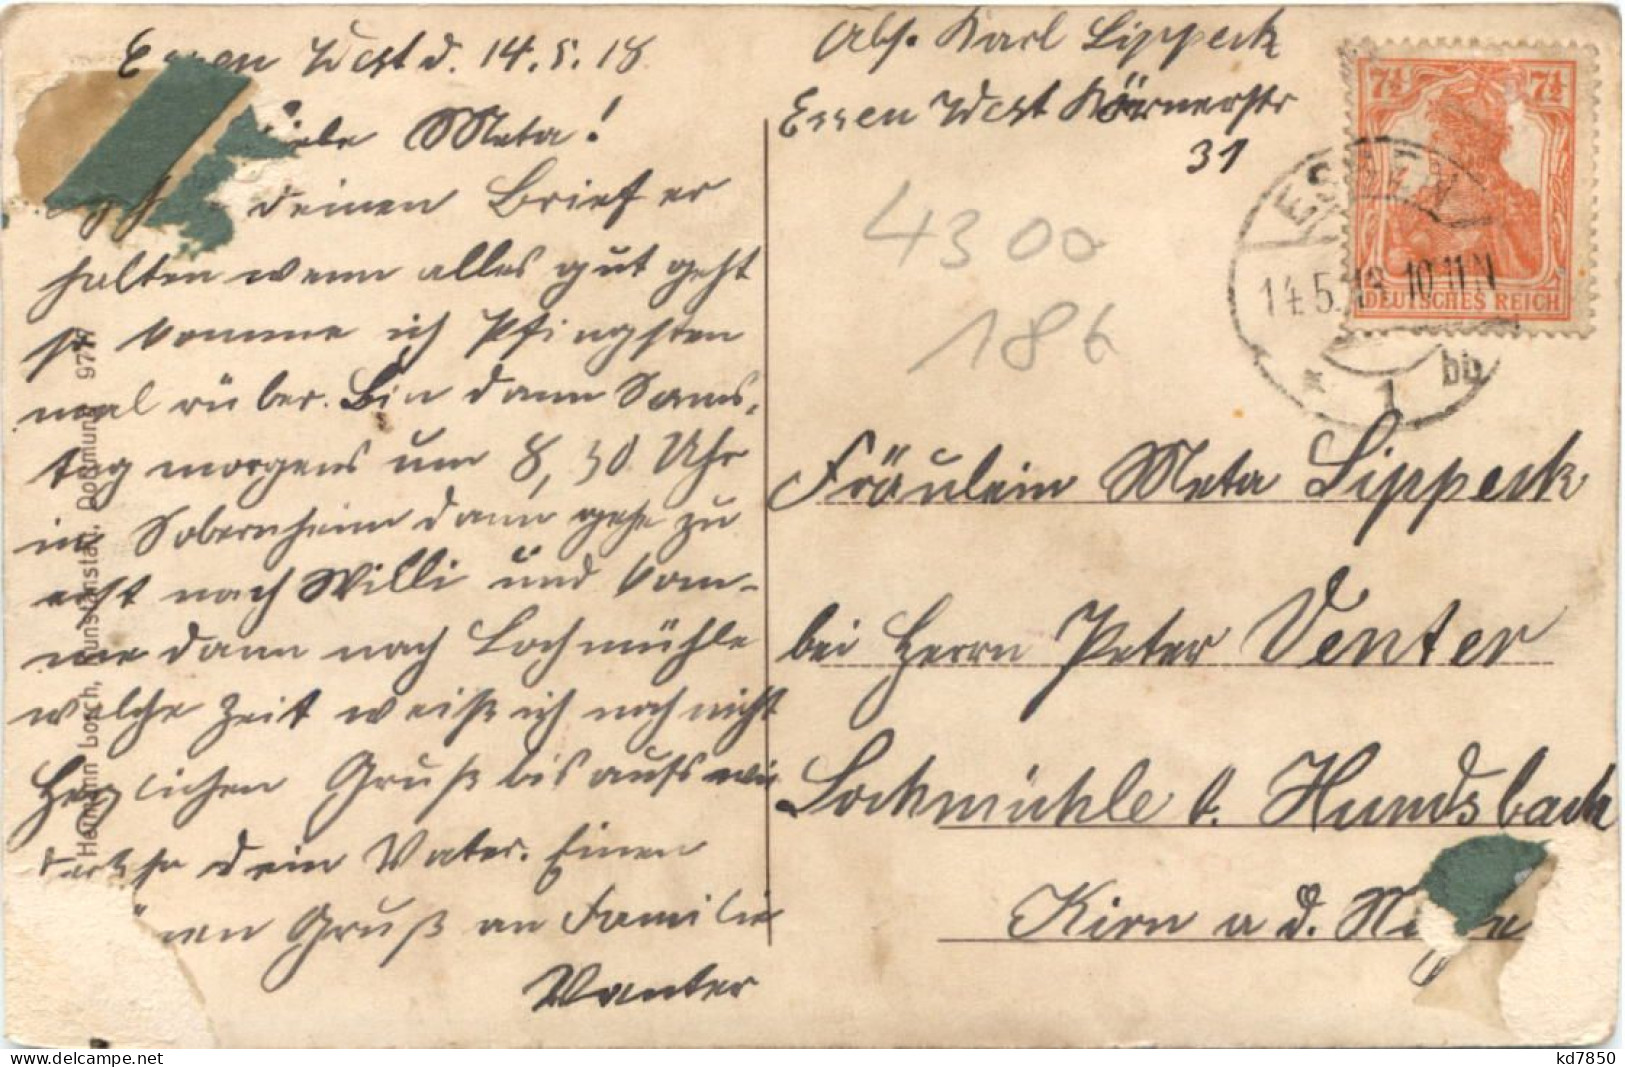 Essen West d. 14.5.18
Liebe Meta!
deinen Brief er
halten wenn alles gut geht
so komme ich Pfingsten
mal rüber. Bin dann Sams,
tag morgens um 8,30 Uhr
in Sobernheim dann gehe zu
erst nach Willi und kom-
me dann nach Lochmühle
welche Zeit weiß ich noch nicht
Herzlichen Gruß bis aufs wie
dersehn dein Vater. Einen
Gruß an Familie
Wenter
Hermann Lorch, Kunstanstalt, Dortmund 977
Abs. Karl Lippeck
Essen West Körnerstr
31
4300
186
7½ 7½
DEUTSCHES REICH
ESSEN
14.5.18 10-11 N
* 1 bb
Fräulein Meta Lippeck
bei Herrn Peter Venter
Lochmühle b. Hundsbach
Kirn a d. Nahe
kd7850